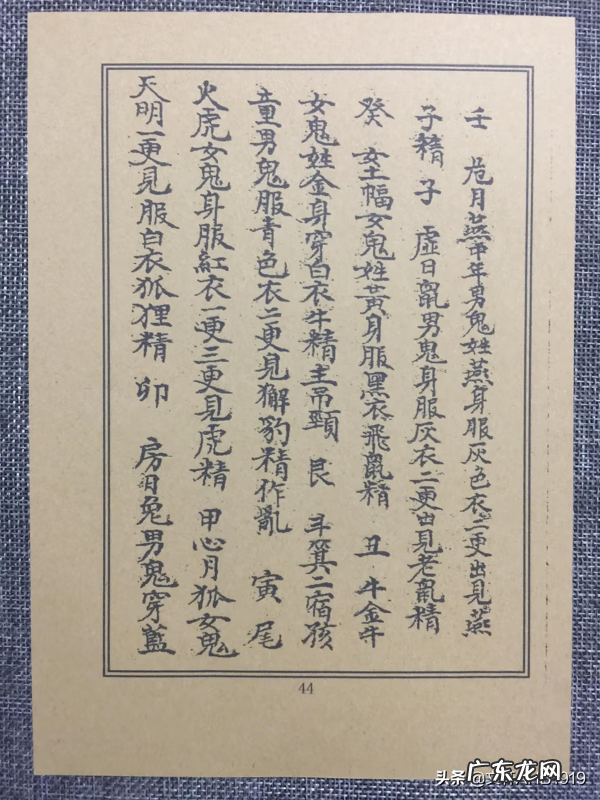 壬　危月燕中年男鬼姓燕身服灰色衣二更出見燕
子精　子　虛日鼠男鬼身服灰衣二更出見老鼠精
癸　女土蝠女鬼姓黃身服黑衣飛鼠精　丑　牛金牛
女鬼姓金身穿白衣牛精主吊頸　艮　斗箕二宿孩
童男鬼服青色衣二更見獬豹精作亂　寅　尾
火虎女鬼身服紅衣一更三更見虎精　甲心月狐女鬼
天明一更見服白衣狐狸精　卯　房日兔男鬼穿藍
44
头条
广东龙网
019